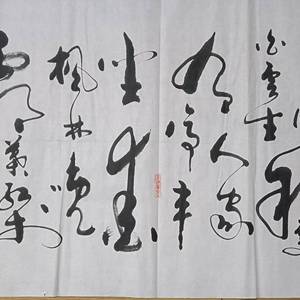 白雲生處
有人家
停車
坐愛
楓林晚
霜葉紅